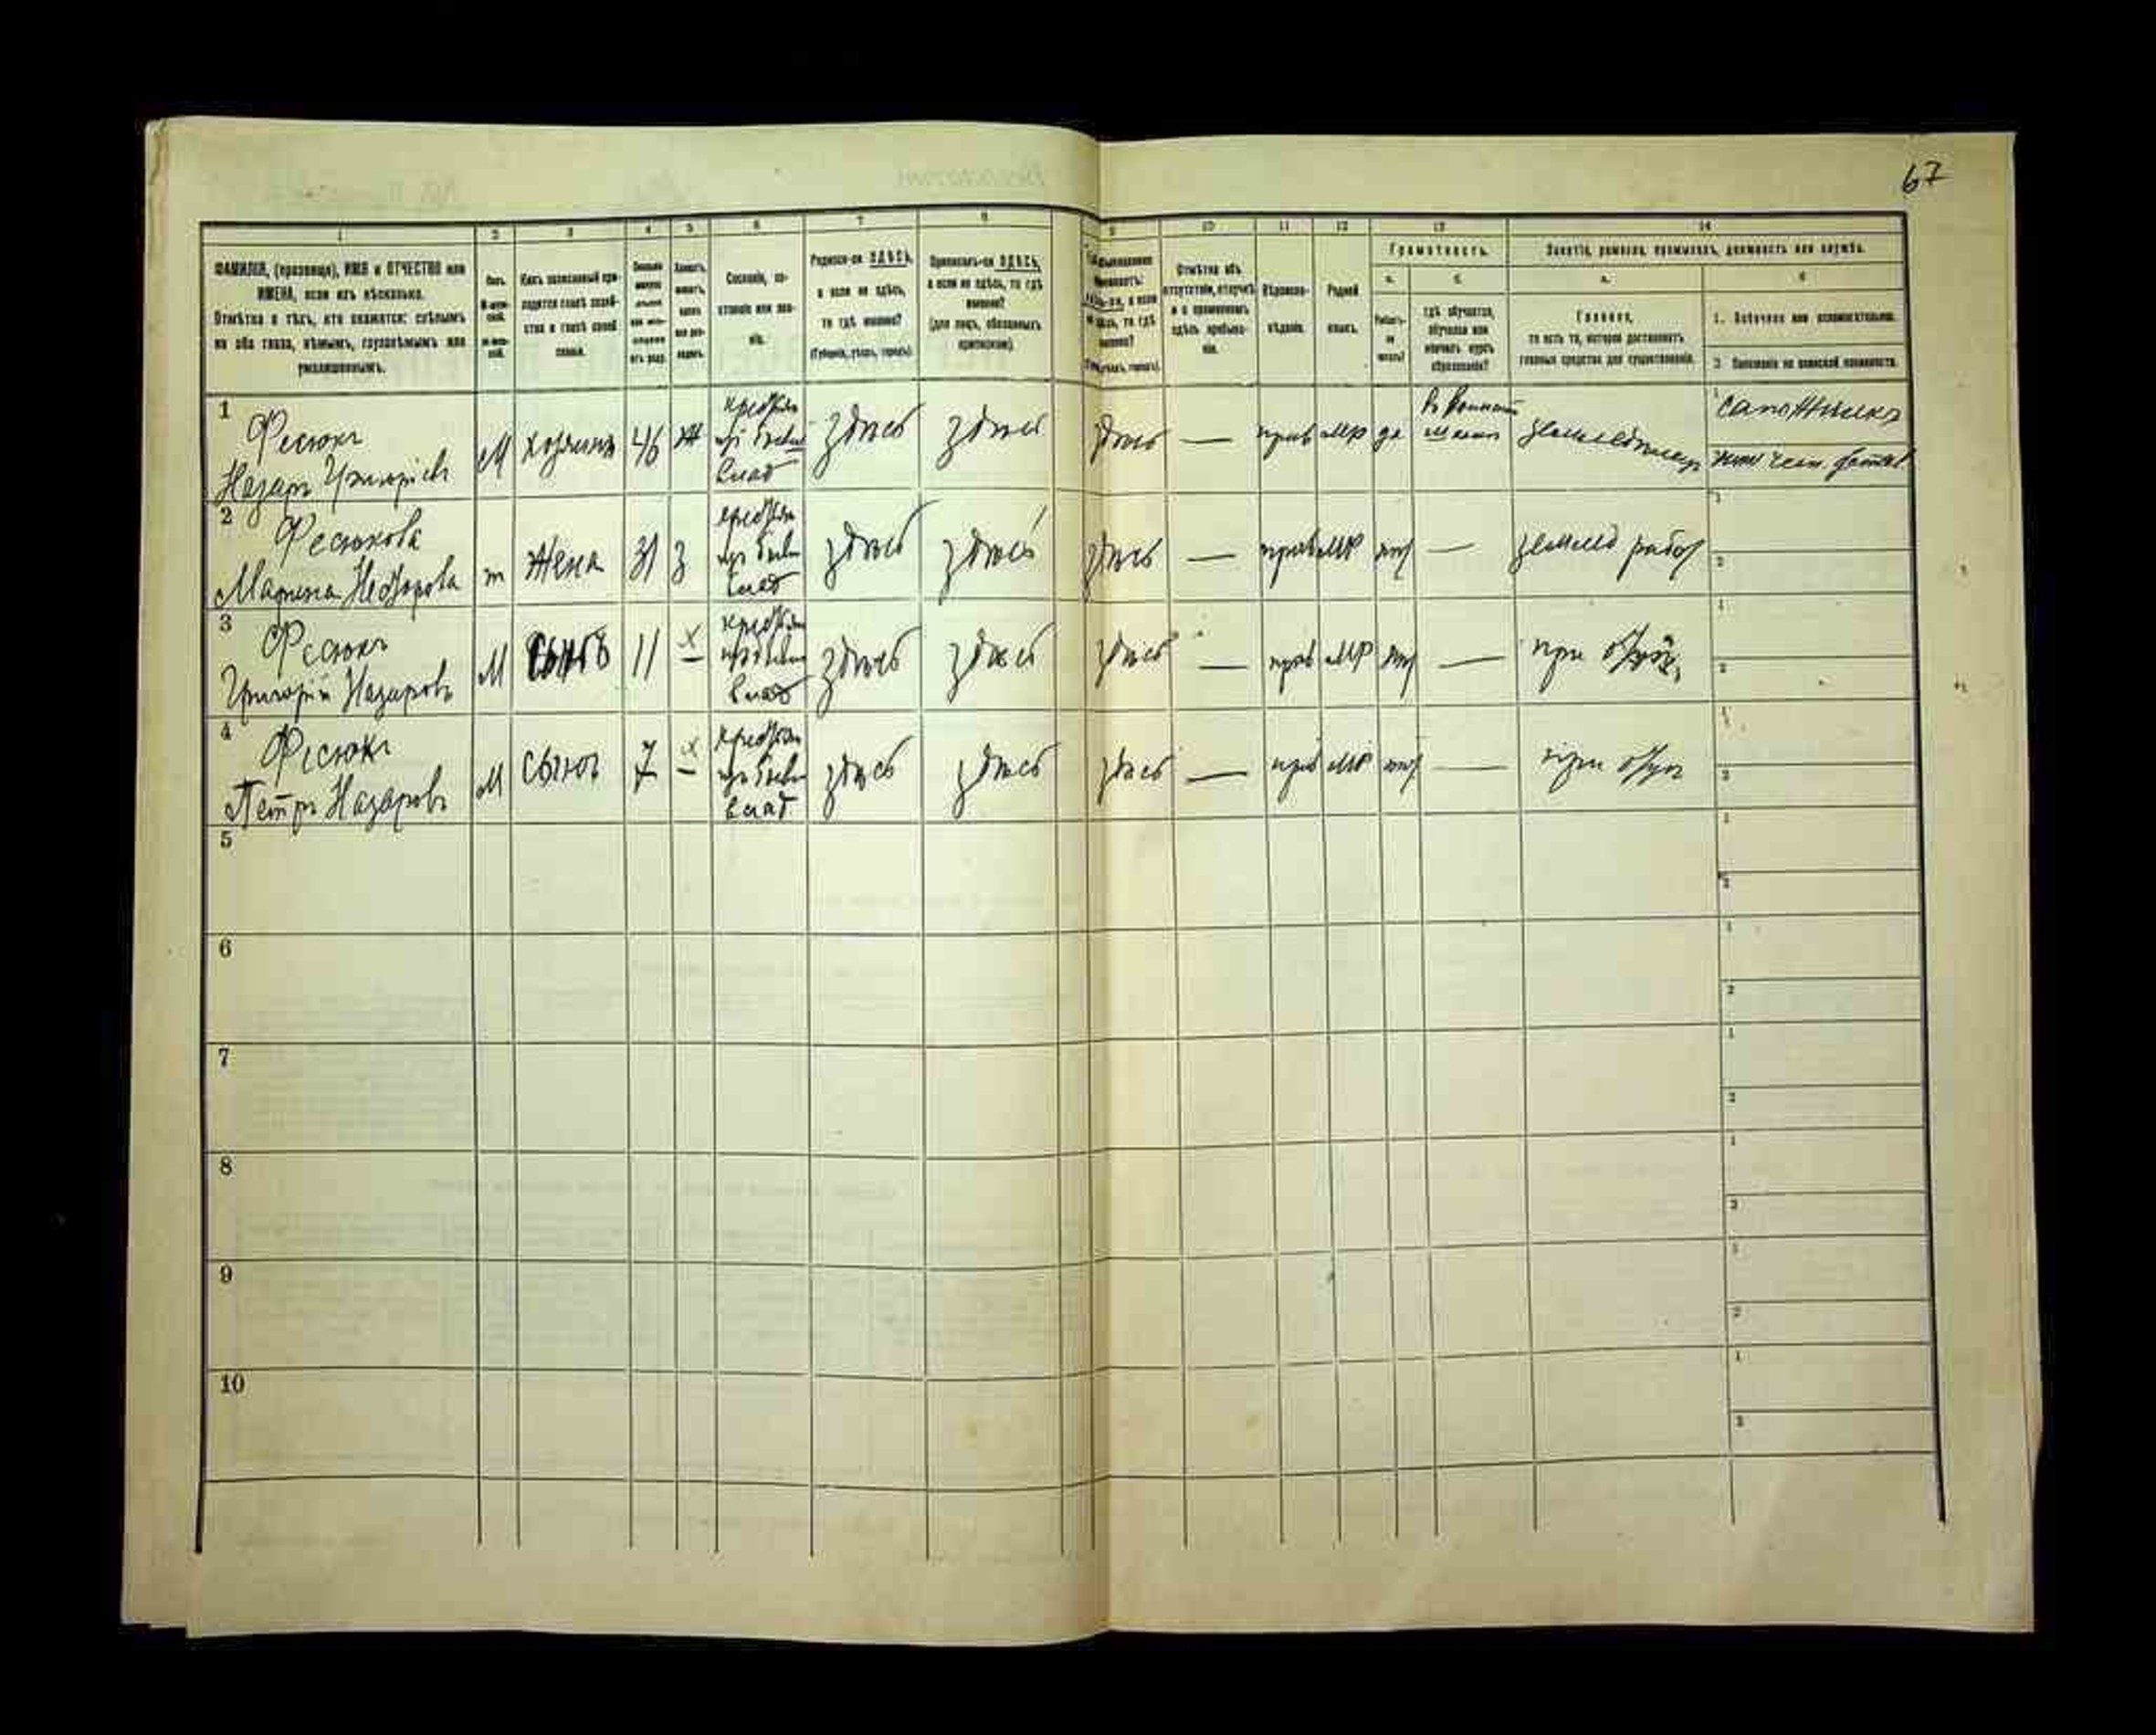 67
1 2 3 4 5 6 7 8 9 10 11 12 13 14
ФАМИЛІЯ, (прозвище), ИМЯ и ОТЧЕСТВО или
ИМЕНА, если ихъ нѣсколько.
Отмѣтка о тѣхъ, кто окажется: слѣпымъ
на оба глаза, нѣмымъ, глухонѣмымъ или
умалишеннымъ.
Полъ.
Какъ записанный при-
ходится главѣ хозяй-
ства и главѣ своей
семьи.
Сословіе, со-
стояніе или зва-
ніе.
Родился-ли ЗДѢСЬ,
а если не здѣсь,
то гдѣ именно?
(Губернія, уѣздъ, городъ).
Приписанъ-ли ЗДѢСЬ,
а если не здѣсь, то гдѣ
именно?
(для лицъ, обязанныхъ
припискою).
Отмѣтка объ
отсутствіи, отлучкѣ
и о временномъ
здѣсь пребыва-
ніи.
Вѣроиспо-
вѣданіе.
Родной
языкъ.
Грамотность.
а.
б.
гдѣ обучается,
обучался или
кончилъ курсъ
образованія?
Занятіе, ремесло, промыселъ, должность или служба.
а.
Главное,
то есть то, которое доставляетъ
главныя средства для существованія.
б
1. Побочное или вспомогательное.
2. Положеніе по воинской повинности.
1
Фесюкъ
Назаръ Григорьевъ
М
хозяинъ
46
Ж
крестьян
влад
здѣсь
здѣсь
здѣсь
—
прав
МР
да
земледѣлец
1 сапожникъ
2
Фесюкова
Марина
ж
жена
31
З
крестьян
влад
здѣсь
здѣсь
здѣсь
—
прав
МР
нѣт
—
землед работ
1
2
3
Фесюкъ
Григорій Назаровъ
М
сынъ
11
х
—
крестьян
влад
здѣсь
здѣсь
здѣсь
—
прав
МР
нѣт
—
при отцѣ
1
2
4
Фесюкъ
Петръ Назаровъ
М
сынъ
7
х
—
крестьян
влад
здѣсь
здѣсь
здѣсь
—
прав
МР
нѣт
—
при отцѣ
1
2
5
1
2
6
1
2
7
1
2
8
1
2
9
1
2
10
1
2